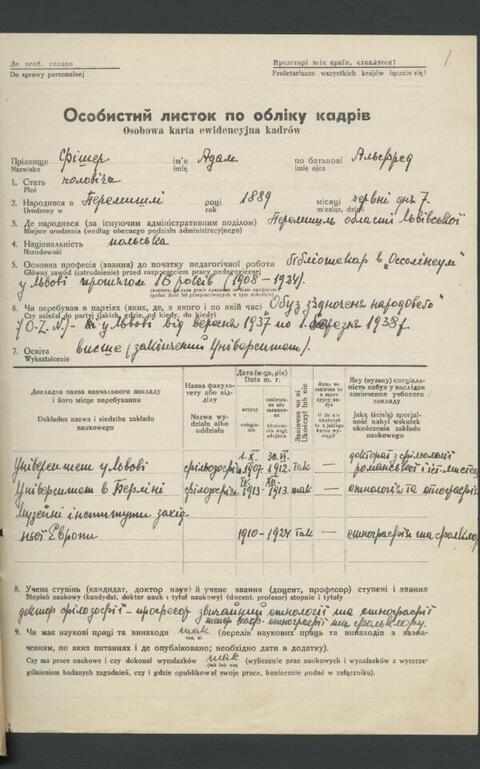 До особ. справи
Do sprawy personalnej
Пролетарі всіх країн, єднайтеся!
Proletariusze wszystkich krajów łączcie się!
1
Особистий листок по обліку кадрів
Osobowa karta ewidencyjna kadrów
Прізвище Фішер ім'я Адам по батькові Альфред
Nazwisko imię imię ojca
1. Стать чоловіча
Płeć
2. Народився в Перемишлі році 1889 місяці червні дня 7.
Urodzony w rok miesiąc, dzień
3. Де народився (за існуючим адміністративним поділом) Перемишль області Львівської
Miejsce urodzenia (według obecnego podziału administracyjnego)
4. Національність польська
Narodowość
5. Основна професія (звання) до початку педагогічної роботи бібліотекар в „Оссолінеум"
Główny zawód (zatrudnienie) przed rozpoczęciem pracy pedagogicznej
у Львові протягом 16 років (1908-1924).
6. Чи перебував в партіях (яких, де, з якого і по який час) "Обуз з'єдноченя народовего"
Czy należał do partyj (jakich, gdzie, od kiedy, do kiedy)
/О.Z.N./- у Львові від вересня 1937 по 1. березня 1938 р.
7. Освіта висше (закінчений Університет).
Wykształcenie
Докладна назва навчального закладу і його місце перебування
Dokładna nazwa i siedziba zakładu naukowego
Назва факультету або відділу
Nazwa wydziału albo oddziału
Дата (м-ць, рік)
Data m. r.
вступу
Закінчив чи ні
Ukończył lub nie
Яку (вузьку) спеціальність набув у наслідок закінчення учбового закладу
Jaką (ścisłą) specjalność nabył wskutek ukończenia zakładu naukowego
Університет у Львові філозофія 1.X. 1907 30.VI. 1912. так — доктор з філології романської і
Університет в Берліні філозофія IV. 1913- XII. 1913. так — етнологія та етнографія
Музейні інститути західньої Европи 1910-1924 так — етнографія та фольклор
8. Учена ступінь (кандидат, доктор наук) й учене звання (доцент, професор) ступені і звання
Stopień naukowy (kandydat, doktor nauk i tytuł naukowy) (docent, profesor) stopnie i tytuły
доктор філозофії - професор звичайний етнології та етнографії
тепер каф. етнографії та фольклору.
9. Чи має наукові праці та винаходи так (перелік наукових праць та винаходів з зазначенням, по яких питаннях і де опубліковано; необхідно дати в додатку).
Czy ma prace naukowe i czy dokonał wynalazków так (wyliczenie prac naukowych i wynalazków z wyszczególnieniem badanych zagadnień, czy i gdzie opublikował swoje prace, koniecznie podać w załączniku).